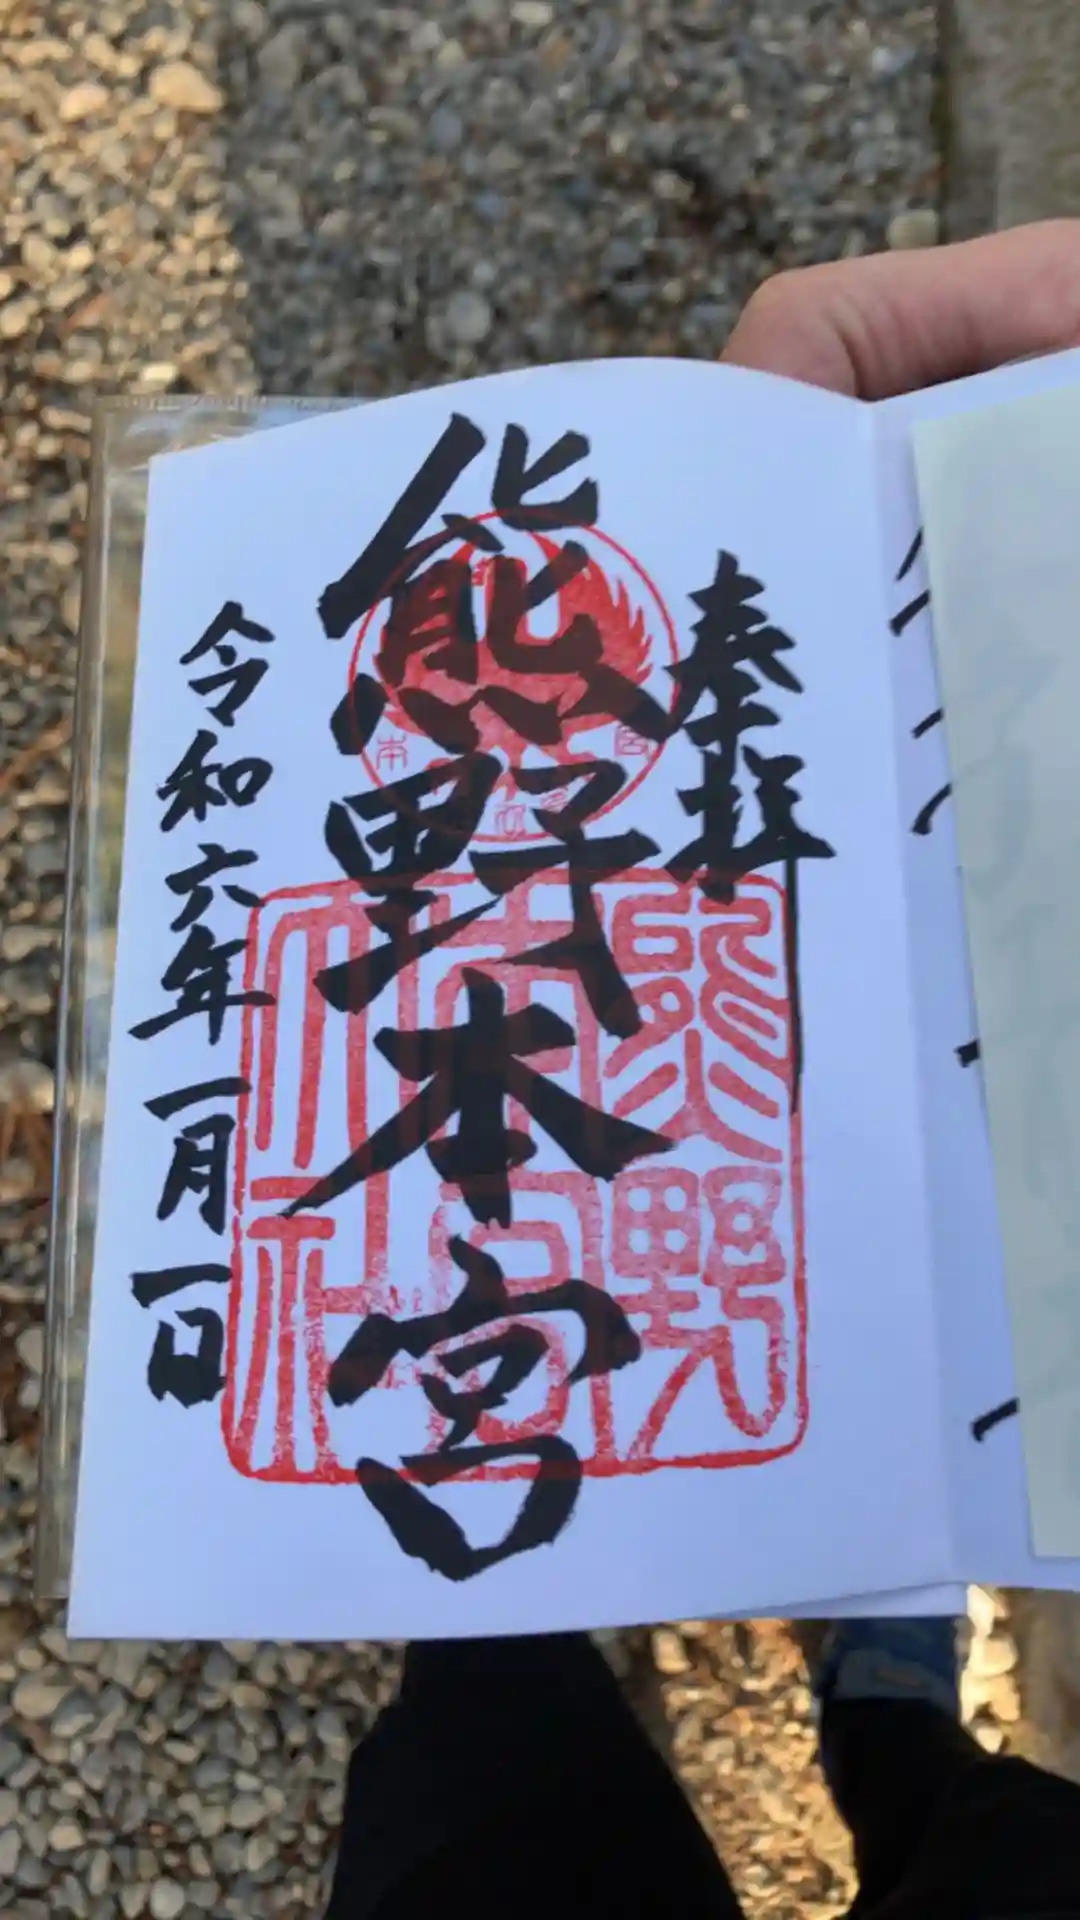 奉拝
熊野本宮
令和六年一月一日
熊野
本宮
大社